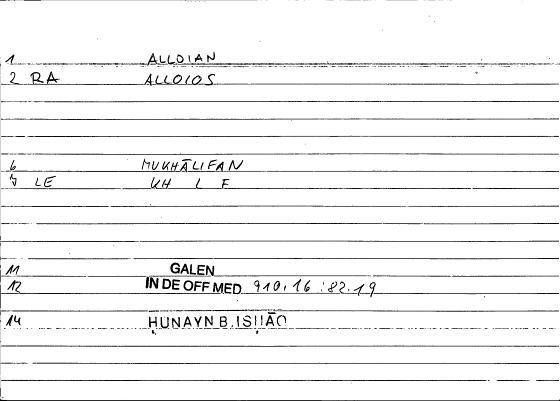 1 ALLOIAN
2 RA ALLOIOS
6 MUKHĀLIFAN
7 LE KH L F
11 GALEN
12 IN DE OFF MED 910,16 : 82.19
14 ḤUNAYN B. ISḤĀQ